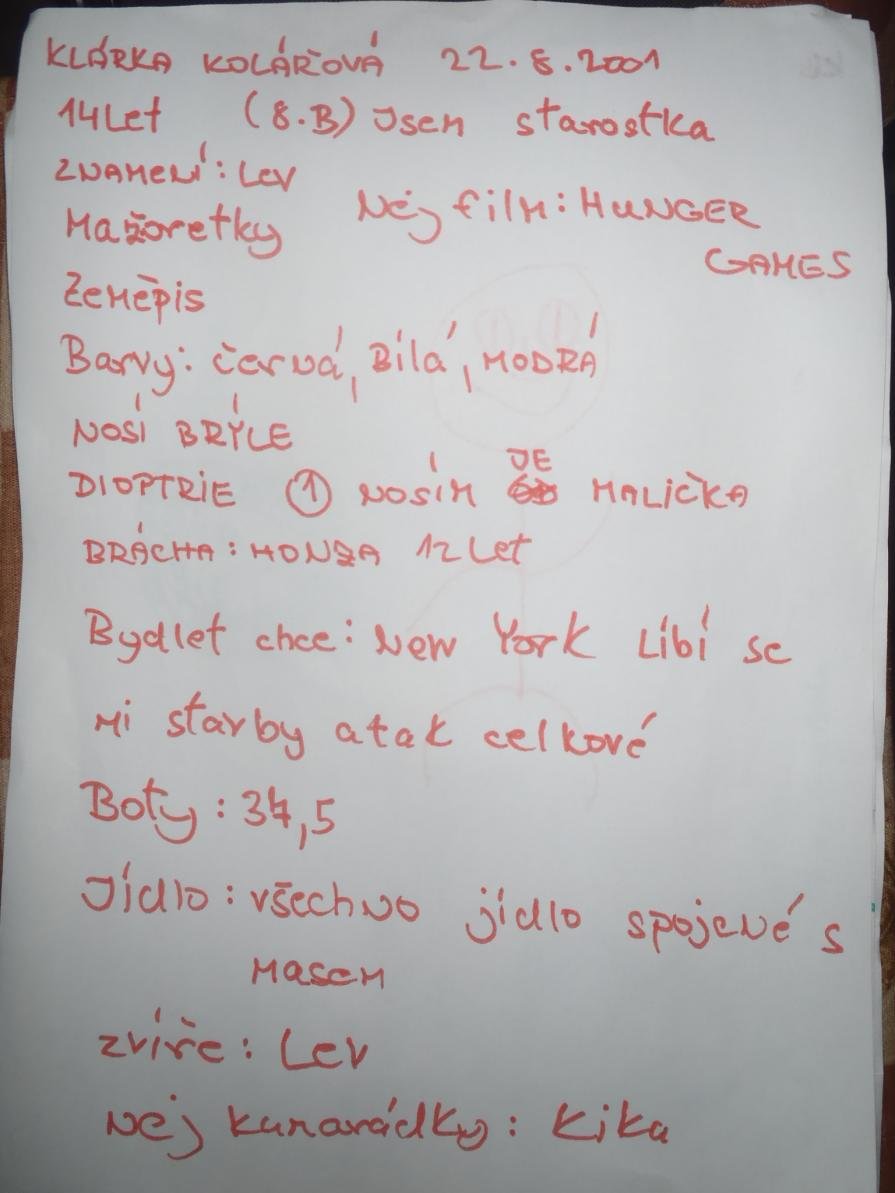 KLÁRKA KOLÁŘOVÁ 22.8.2001
14Let (8.B) Jsem starostka
ZNAMENÍ: Lev
Mažoretky Něj film: HUNGER
GAMES
Zeměpis
Barvy: černá, Bílá, MODRÁ
NOSÍ BRÝLE
JE
DIOPTRIE 1 NOSÍM MALIČKA
BRÁCHA: HONZA 12 Let
Bydlet chce: New York Líbí se
mi starby a tak celkové
Boty: 37,5
Jídlo: všechno jídlo spojené s
masem
zvíře: Lev
Něj kamarádky: Kika